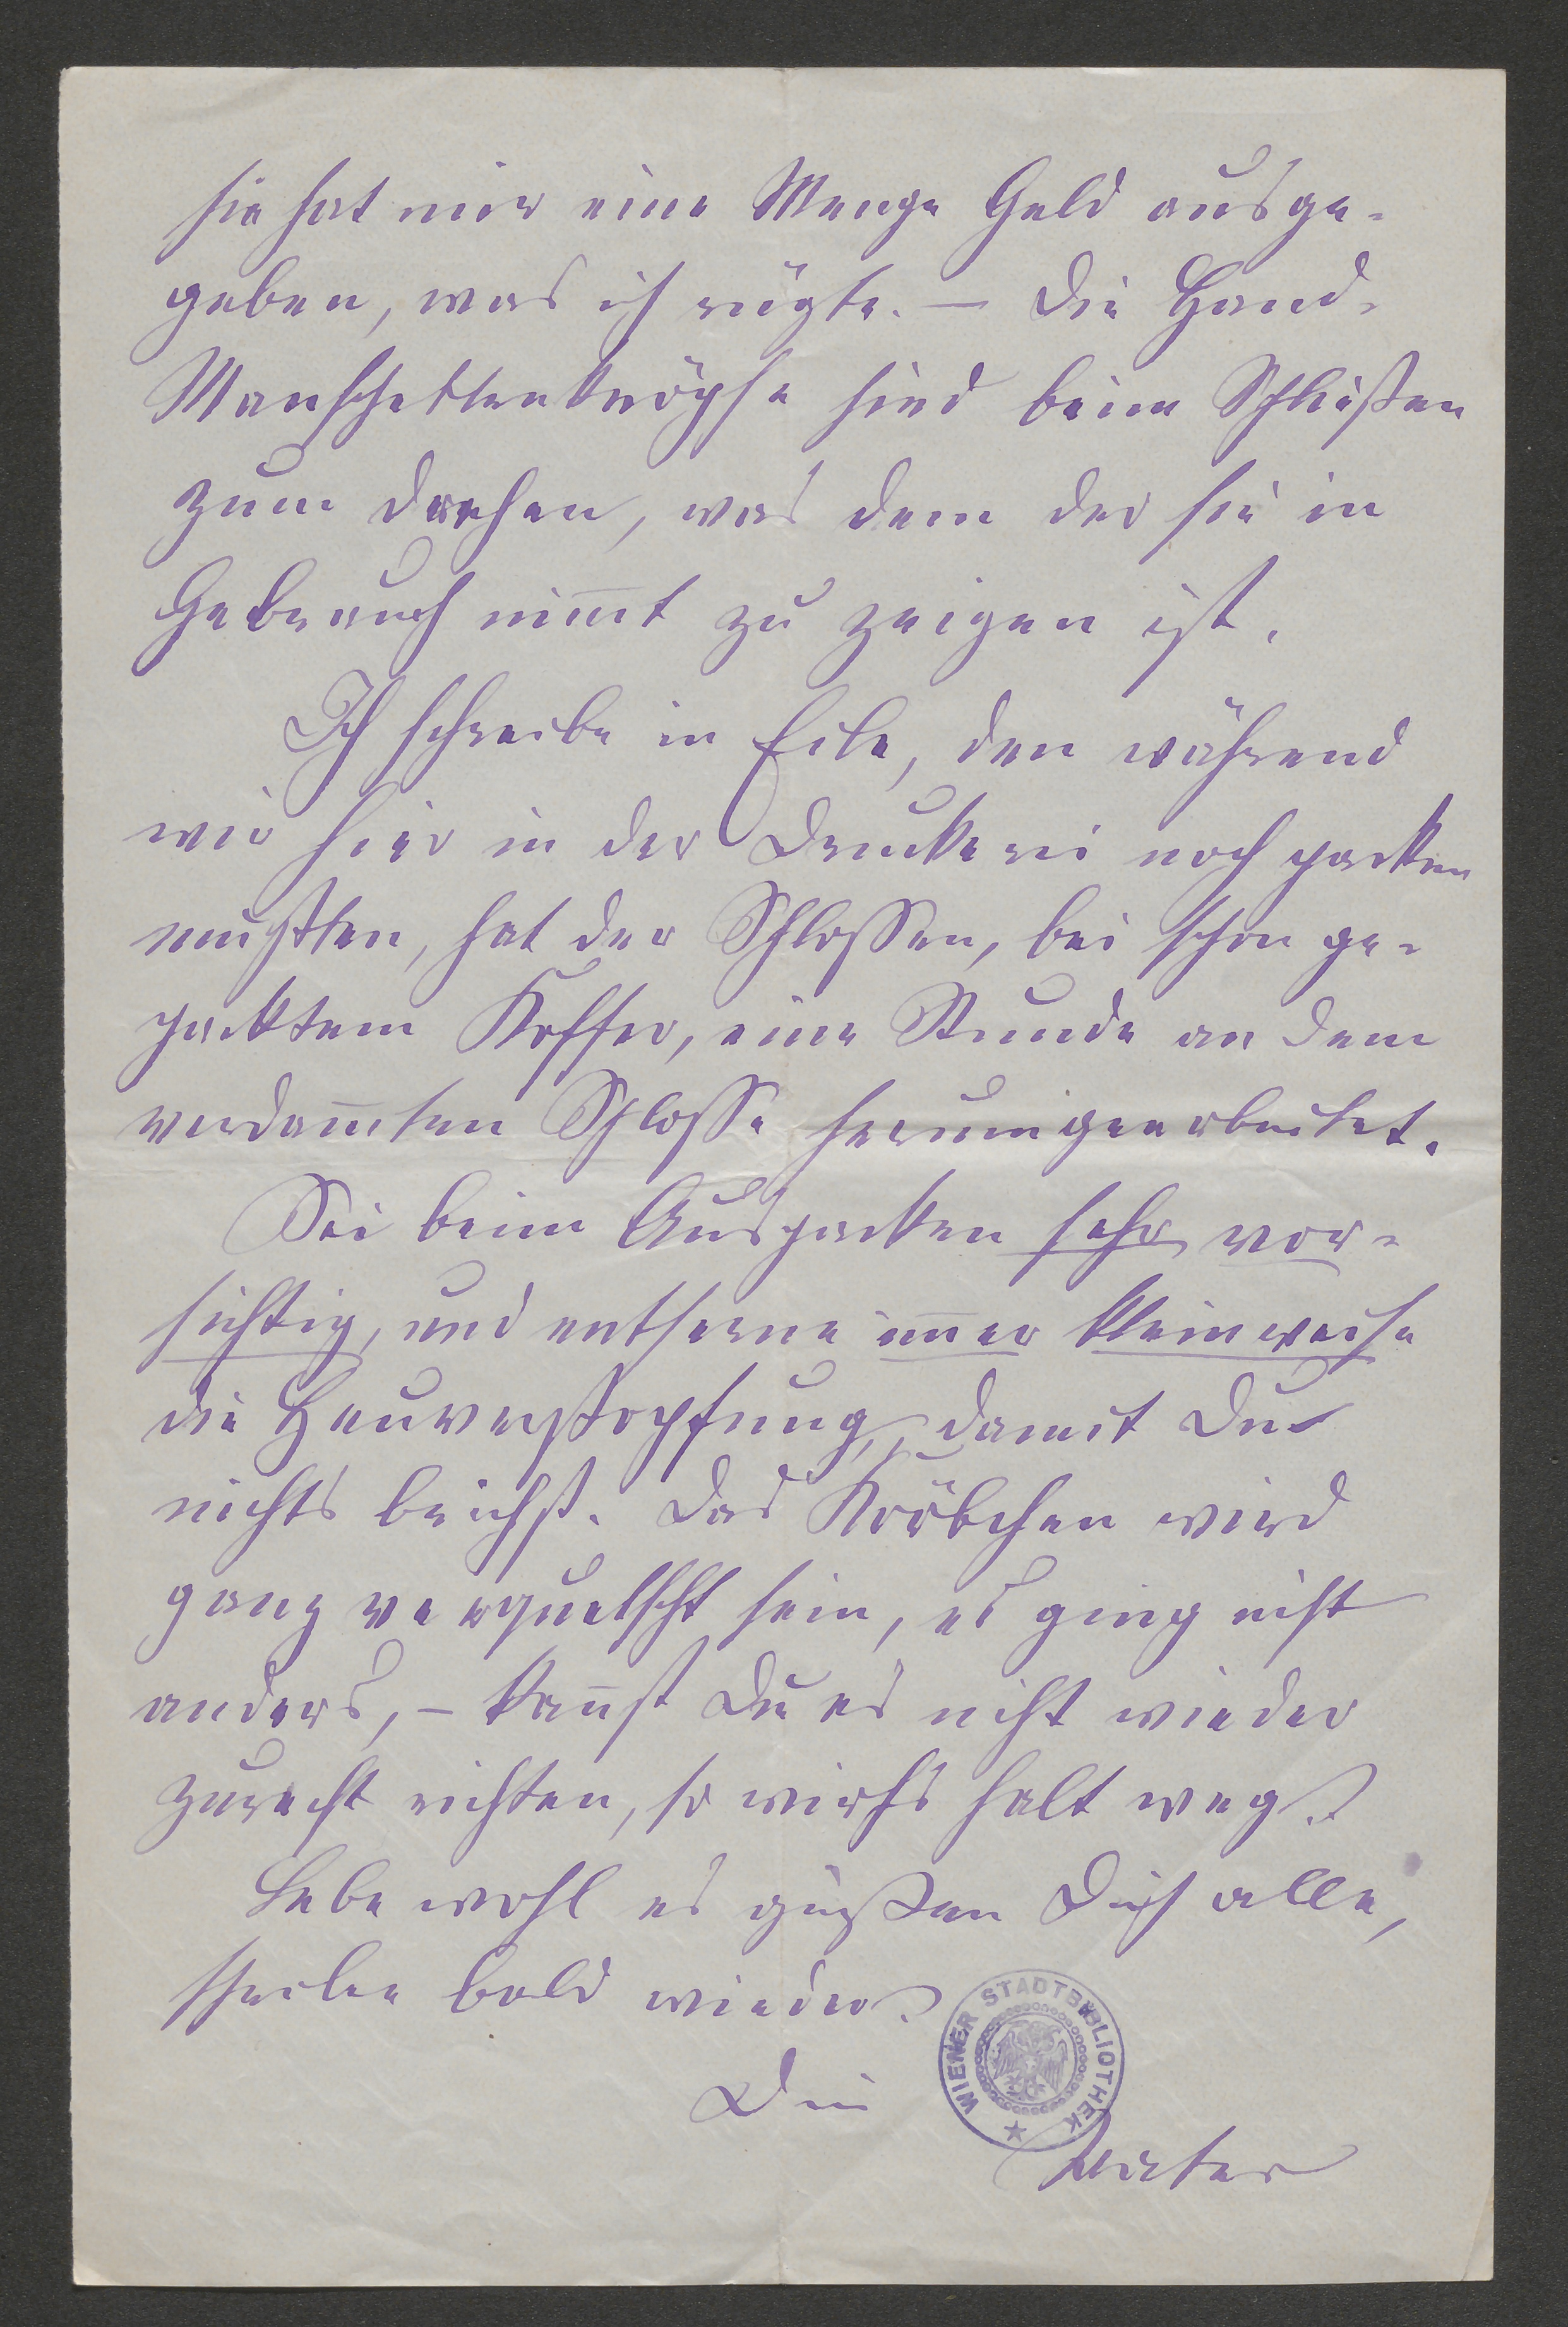 sie hat mir eine Menge Geld ausge-
geben, was ich rügte. — Die Hand-
Manschettenknöpfe sind beim Schließen
zum drehen, was dem der sie in
Gebrauch nim̄t zu zeigen ist.
Ich schreibe in Eile, den während
wir hier in der Druckerei noch packen
mußten, hat der Schlosser, bei schon ge-
packtem Koffer, eine Stunde an dem
verdam̄ten Schlosse herumgearbeitet.
Sei beim Auspacken sehr vor-
sichtig, und entferne im̄er kleinweise
die Heuverstopfung, damit Du
nichts brichst. Das Körbchen wird
ganz verquetscht sein, es ging nicht
anders, – kan̄st Du es nicht wieder
zurecht richten, so wirfs halt weg.
Lebe wohl es grüßen Dich alle,
schreibe bald wieder.
Dein
Vater
WIENER STADTBIBLIOTHEK